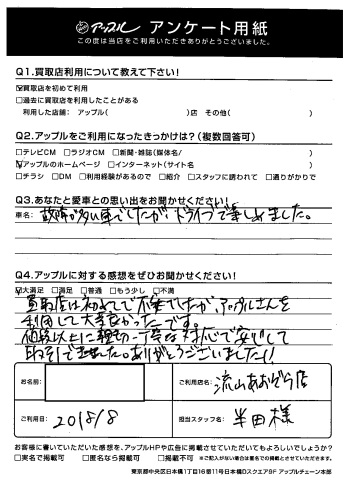 アップル アンケート用紙
この度は当店をご利用いただきありがとうございました。
Q1.買取店利用について教えて下さい!
☑買取店を初めて利用
□過去に買取店を利用したことがある
利用した店舗: アップル( )店 その他( )
Q2.アップルをご利用になったきっかけは?(複数回答可)
□テレビCM □ラジオCM □新聞・雑誌(媒体名/ )
☑アップルのホームページ □インターネット(サイト名 )
□チラシ □DM □利用経験があるので □紹介 □スタッフに誘われて □通りがかりで
Q3.あなたと愛車との思い出をお聞かせください!
車名: 故障が多い車でしたが ドライブで楽しめました。
Q4.アップルに対する感想をぜひお聞かせください!
☑大満足 □満足 □普通 □もう少し □不満
買取店は初めてで不安でしたが、アップルさんを
利用して大変良かったです。
値段以上に親切、丁寧な対応で安心して
取引できました。ありがとうございました!!
お名前:
ご利用店名: 流山あおぞら店
ご利用日: 2018/8
担当スタッフ名: 半田様
お客様に書いていただいた感想を、アップルHPや広告に掲載させていただいてもよろしいでしょうか?
□実名で掲載可 □匿名なら掲載可 □掲載不可 ※ご記入がない場合は匿名での掲載とさせていただきます。
東京都中央区日本橋1丁目16番11号日本橋Dスクエア9F アップルチェーン本部